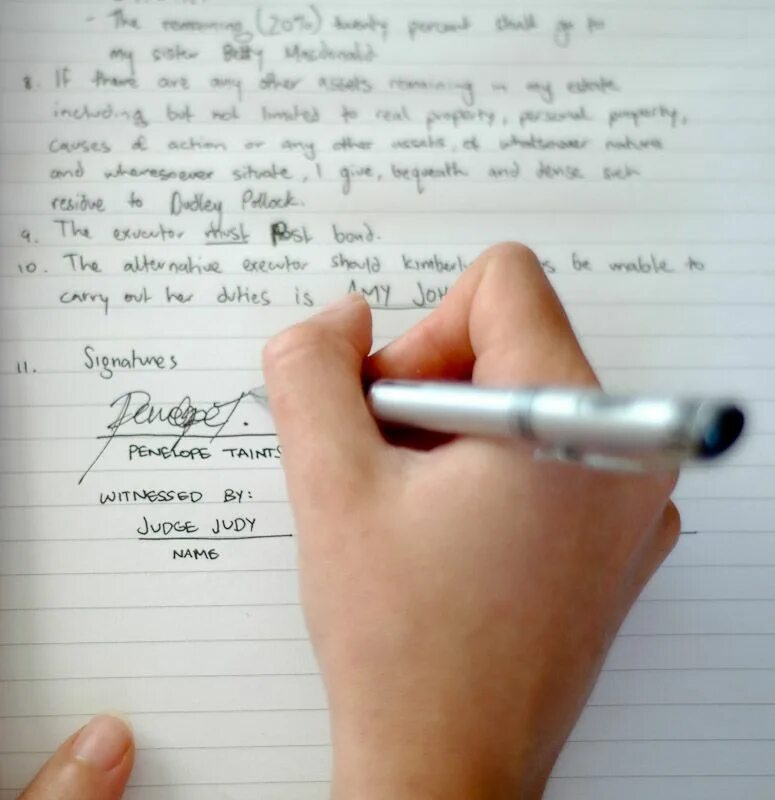 - The remaining (20%) twenty percent shall go to
my sister Betty Macdonald
8. If there are any other assets remaining in my estate
including but not limited to real property, personal property,
causes of action or any other assets, of whatsoever nature
and wheresoever situate, I give, bequeath and devise such
residue to Dudley Pollock.
9. The executor must Post bond.
10. The alternative executor should Kimberl be unable to
carry out her duties is AMY
11. Signatures
Penelope T.
PENELOPE TAINTS
WITNESSED BY:
JUDGE JUDY
NAME